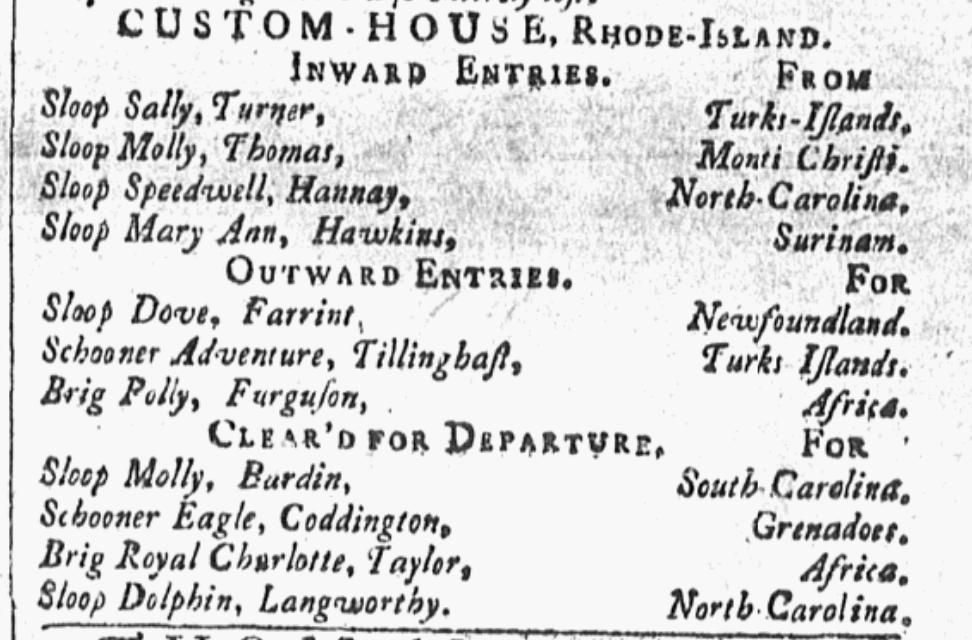 CUSTOM-HOUSE, RHODE-ISLAND.
INWARD ENTRIES. FROM
Sloop Sally, Turner, Turks-Iſlands.
Sloop Molly, Thomas, Monti Chriſti.
Sloop Speedwell, Hannay, North-Carolina.
Sloop Mary Ann, Hawkins, Surinam.
OUTWARD ENTRIES. FOR
Sloop Dove, Farrint, Newfoundland.
Schooner Adventure, Tillinghaſt, Turks Iſlands.
Brig Polly, Furguſon, Africa.
CLEAR'D FOR DEPARTURE, FOR
Sloop Molly, Burdin, South-Carolina.
Schooner Eagle, Coddington, Grenadoes.
Brig Royal Charlotte, Taylor, Africa.
Sloop Dolphin, Langworthy. North-Carolina.